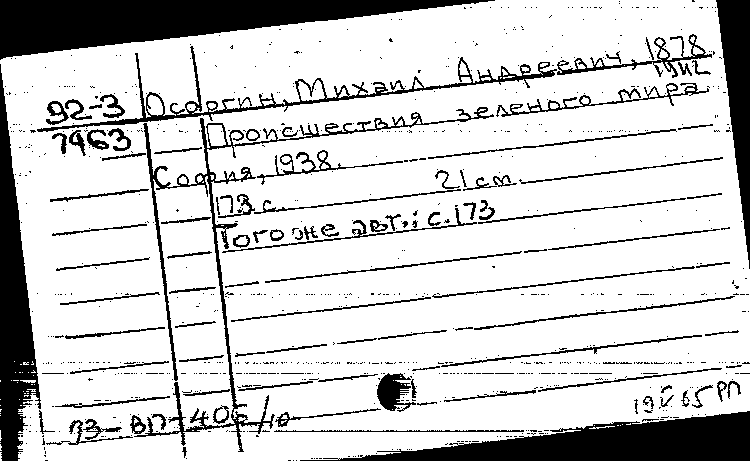 92-3 Осоргин, Михаил Андреевич, 1878
1942
7463 Происшествия зеленого мира
София, 1938.
173 с. 21 cm.
Того же авт.: с.173
73-ВП-406/10
19 V 65 РП